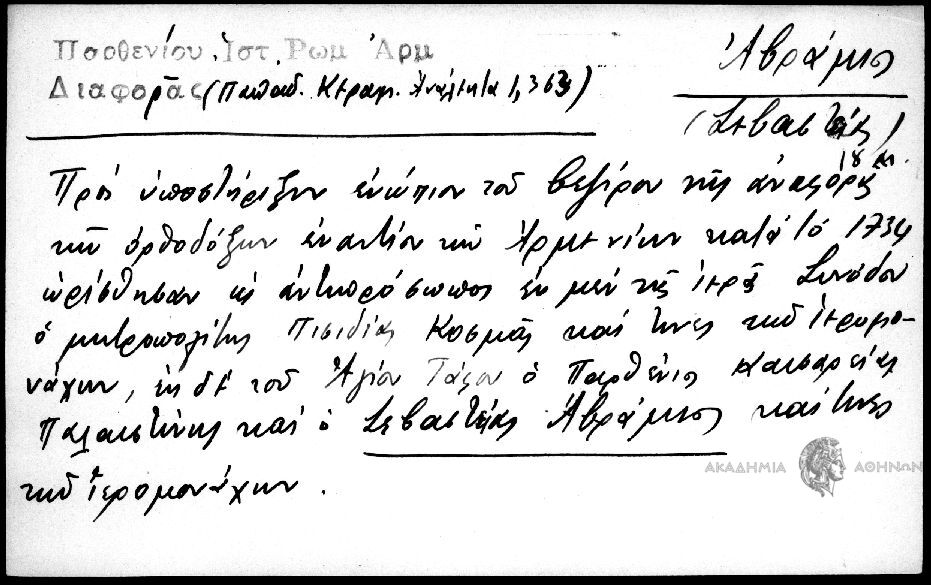 Παρθενίου, Ἱστ. Ρωμ Ἀρμ
Διαφορᾶς (Παπαδ. Κεραμ. Ἀνάλεκτα 1, 363)
Ἀβράμιος
(Σεβαστείας)
18 αι.
Πρός ὑποστήριξιν ἐνώπιον τοῦ βεζίρου τῆς ἀναφορᾶς
τῶν ὀρθοδόξων ἐναντίον τῶν Ἀρμενίων κατά τό 1734
ὡρίσθησαν ὡς ἀντιπρόσωποι ἐκ μέν τῆς ἱερᾶς Συνόδου
ὁ μητροπολίτης Πισιδίας Κοσμᾶς καί τινες τῶν ἱερομο-
νάχων, ἐκ δέ τοῦ Ἁγίου Τάφου ὁ Παρθένιος Καισαρείας
Παλαιστίνης καί ὁ Σεβαστείας Ἀβράμιος καί τινες
τῶν ἱερομονάχων.
ΑΚΑΔΗΜΙΑ ΑΘΗΝΩΝ